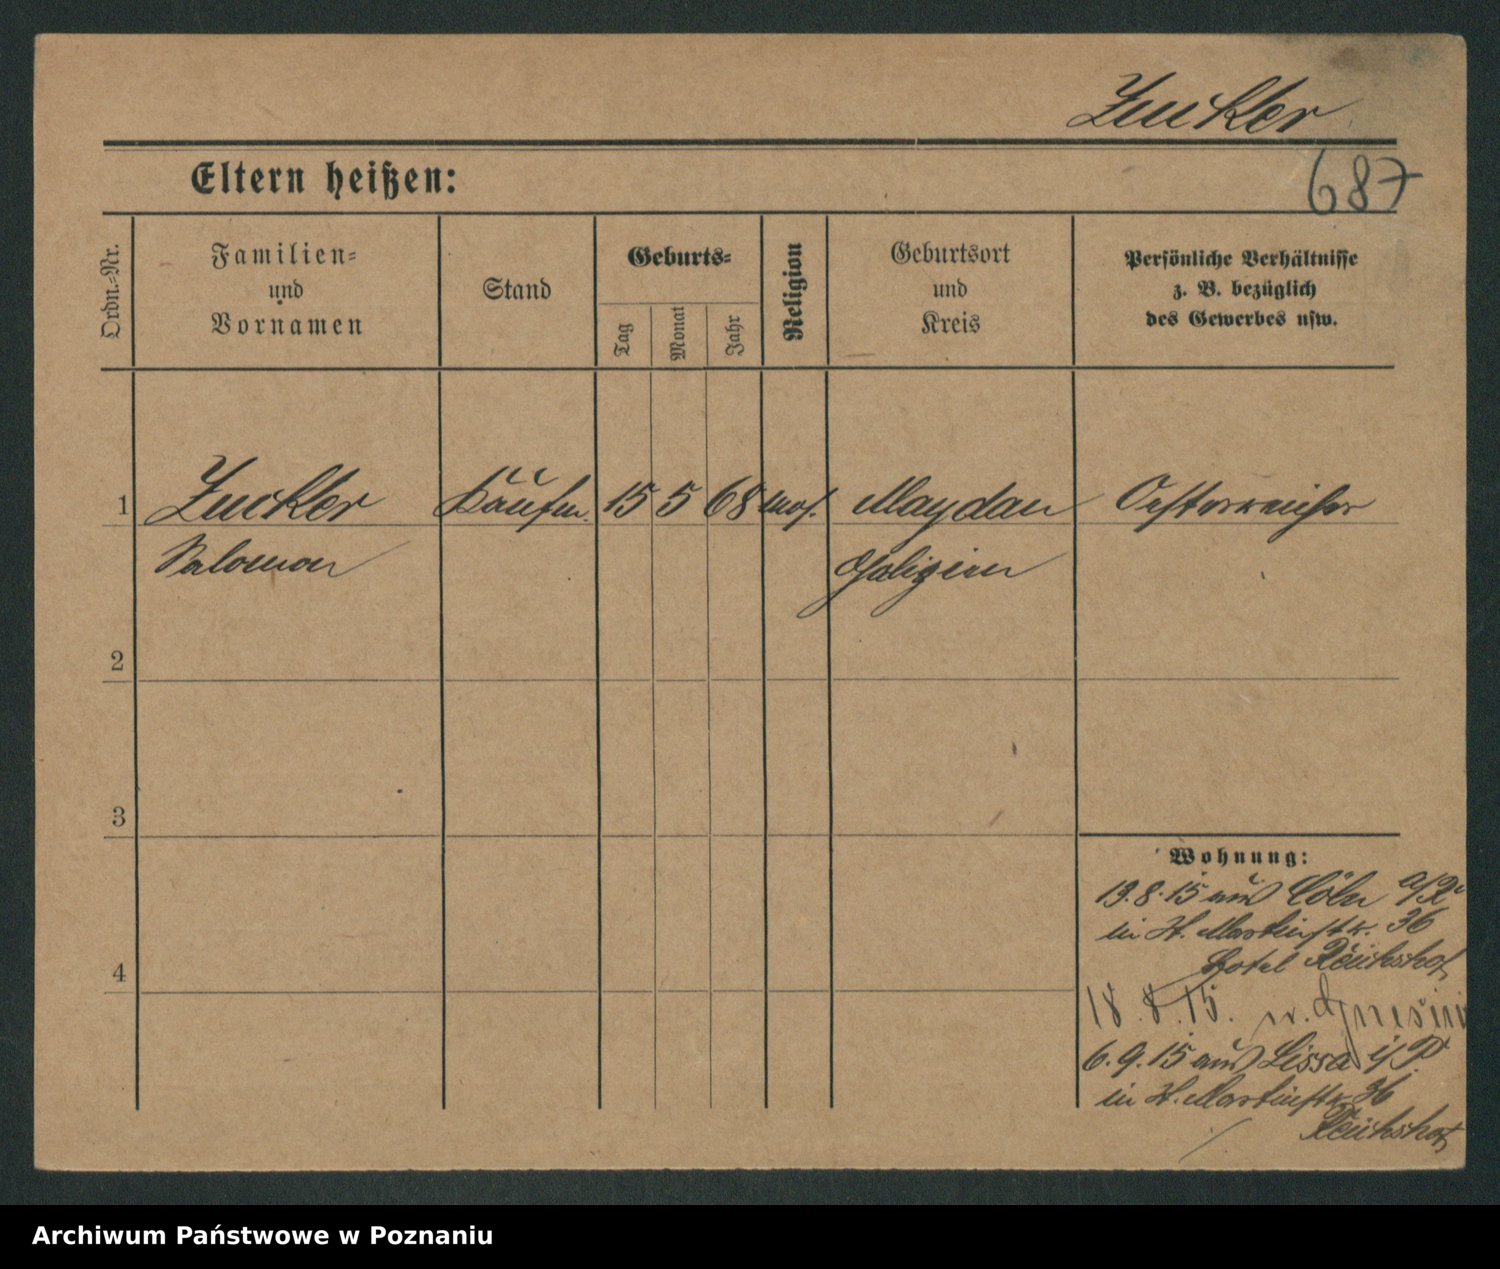 Zuckler
687
Eltern heißen:
Ordn.-Nr.
Familien-
und
Vornamen
Stand
Geburts-
Tag
Monat
Jahr
Religion
Geburtsort
und
Kreis
Persönliche Verhältnisse
z. B. bezüglich
des Gewerbes usw.
1 Zuckler Kaufm. 15 5 68 mos. Maydan Oesterreicher
Salomon Galizien
2
3
4
Wohnung:
13.8.15 aus Cöln a/R
in St. Martinstr. 36
Hotel Reichshof
18.8.15. n. Gnesen
6.9.15 aus Lissa i/P.
in St. Martinstr. 36
Reichshof
Archiwum Państwowe w Poznaniu